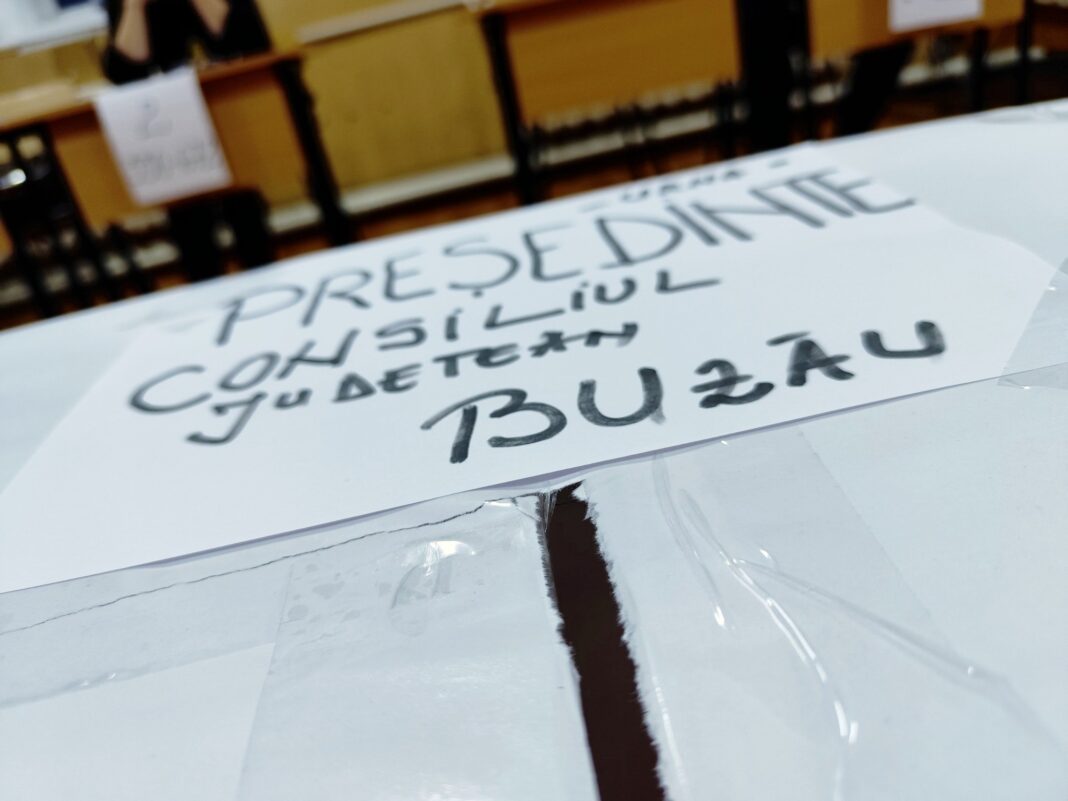 PREȘEDINTE
CONSILIUL
JUDEȚEAN
BUZĂU